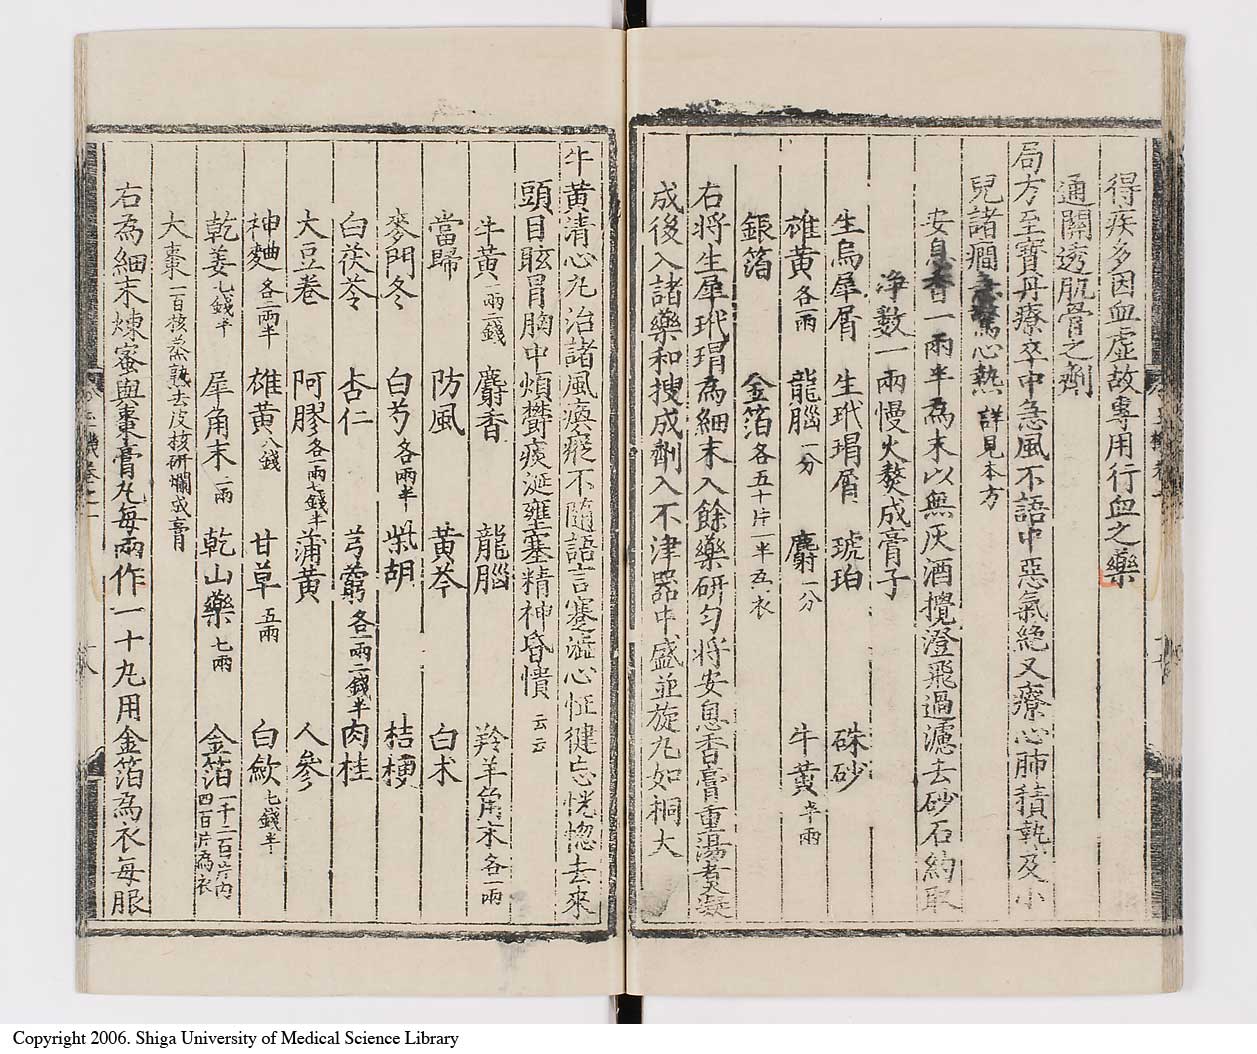 得疾多因血虛故專用行血之藥
通關透肌骨之劑
局方至寶丹療卒中急風不語中惡氣絕又療心肺積熱及小
兒諸癇心熱 詳見本方
安息香一兩半為末以無灰酒攪澄飛過濾去砂石約取
淨數一兩慢火熬成膏子
生烏犀屑 生玳瑁屑 琥珀 硃砂
雄黃各一兩 龍腦一分 麝一分 牛黃半兩
銀箔 金箔各五十片一半為衣
右將生犀玳瑁為細末入餘藥研勻將安息香膏重湯煮凝
成後入諸藥和搜成劑入不津器中盛並旋丸如桐大
牛黃清心丸治諸風瘓瘲不隨語言蹇澁心怔健忘恍惚去來
頭目眩冒胸中煩鬱痰涎壅塞精神昏憒 云云
牛黃一兩二錢 麝香 龍腦 羚羊角末各一兩
當歸 防風 黃芩 白朮
麥門冬 白芍各一兩半 柴胡 桔梗
白茯苓 杏仁 芎藭各一兩二錢半 肉桂
大豆卷 阿膠各一兩七錢半 蒲黃 人參
神麯各二兩半 雄黃八錢 甘草五兩 白蘞七錢半
乾姜七錢半 犀角末二兩 乾山藥七兩 金箔一千二百片內四百片為衣
大棗一百枚蒸熟去皮核研爛成膏
右為細末煉蜜與棗膏丸每兩作一十丸用金箔為衣每服
Copyright 2006. Shiga University of Medical Science Library